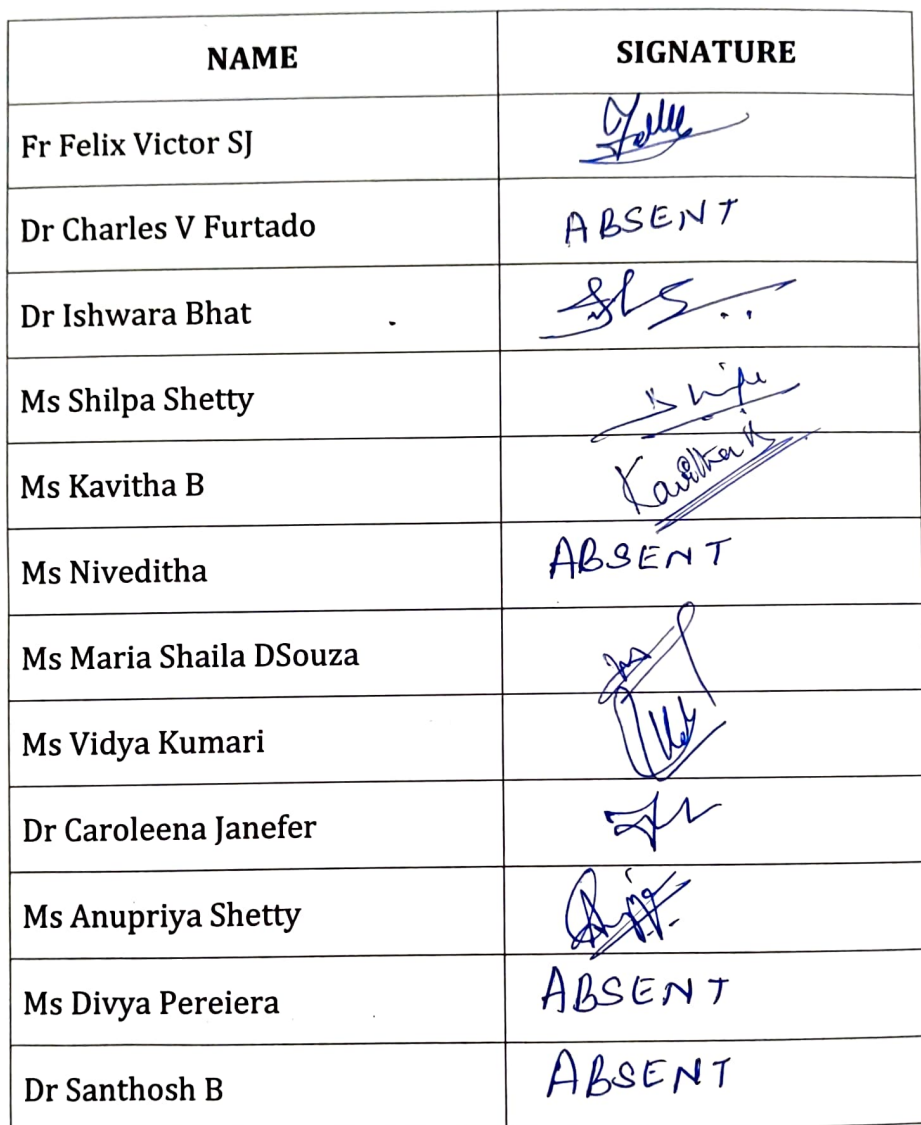 NAME SIGNATURE
Fr Felix Victor SJ
Dr Charles V Furtado ABSENT
Dr Ishwara Bhat
Ms Shilpa Shetty
Ms Kavitha B Kavitha B
Ms Niveditha ABSENT
Ms Maria Shaila DSouza
Ms Vidya Kumari
Dr Caroleena Janefer
Ms Anupriya Shetty
Ms Divya Pereiera ABSENT
Dr Santhosh B ABSENT